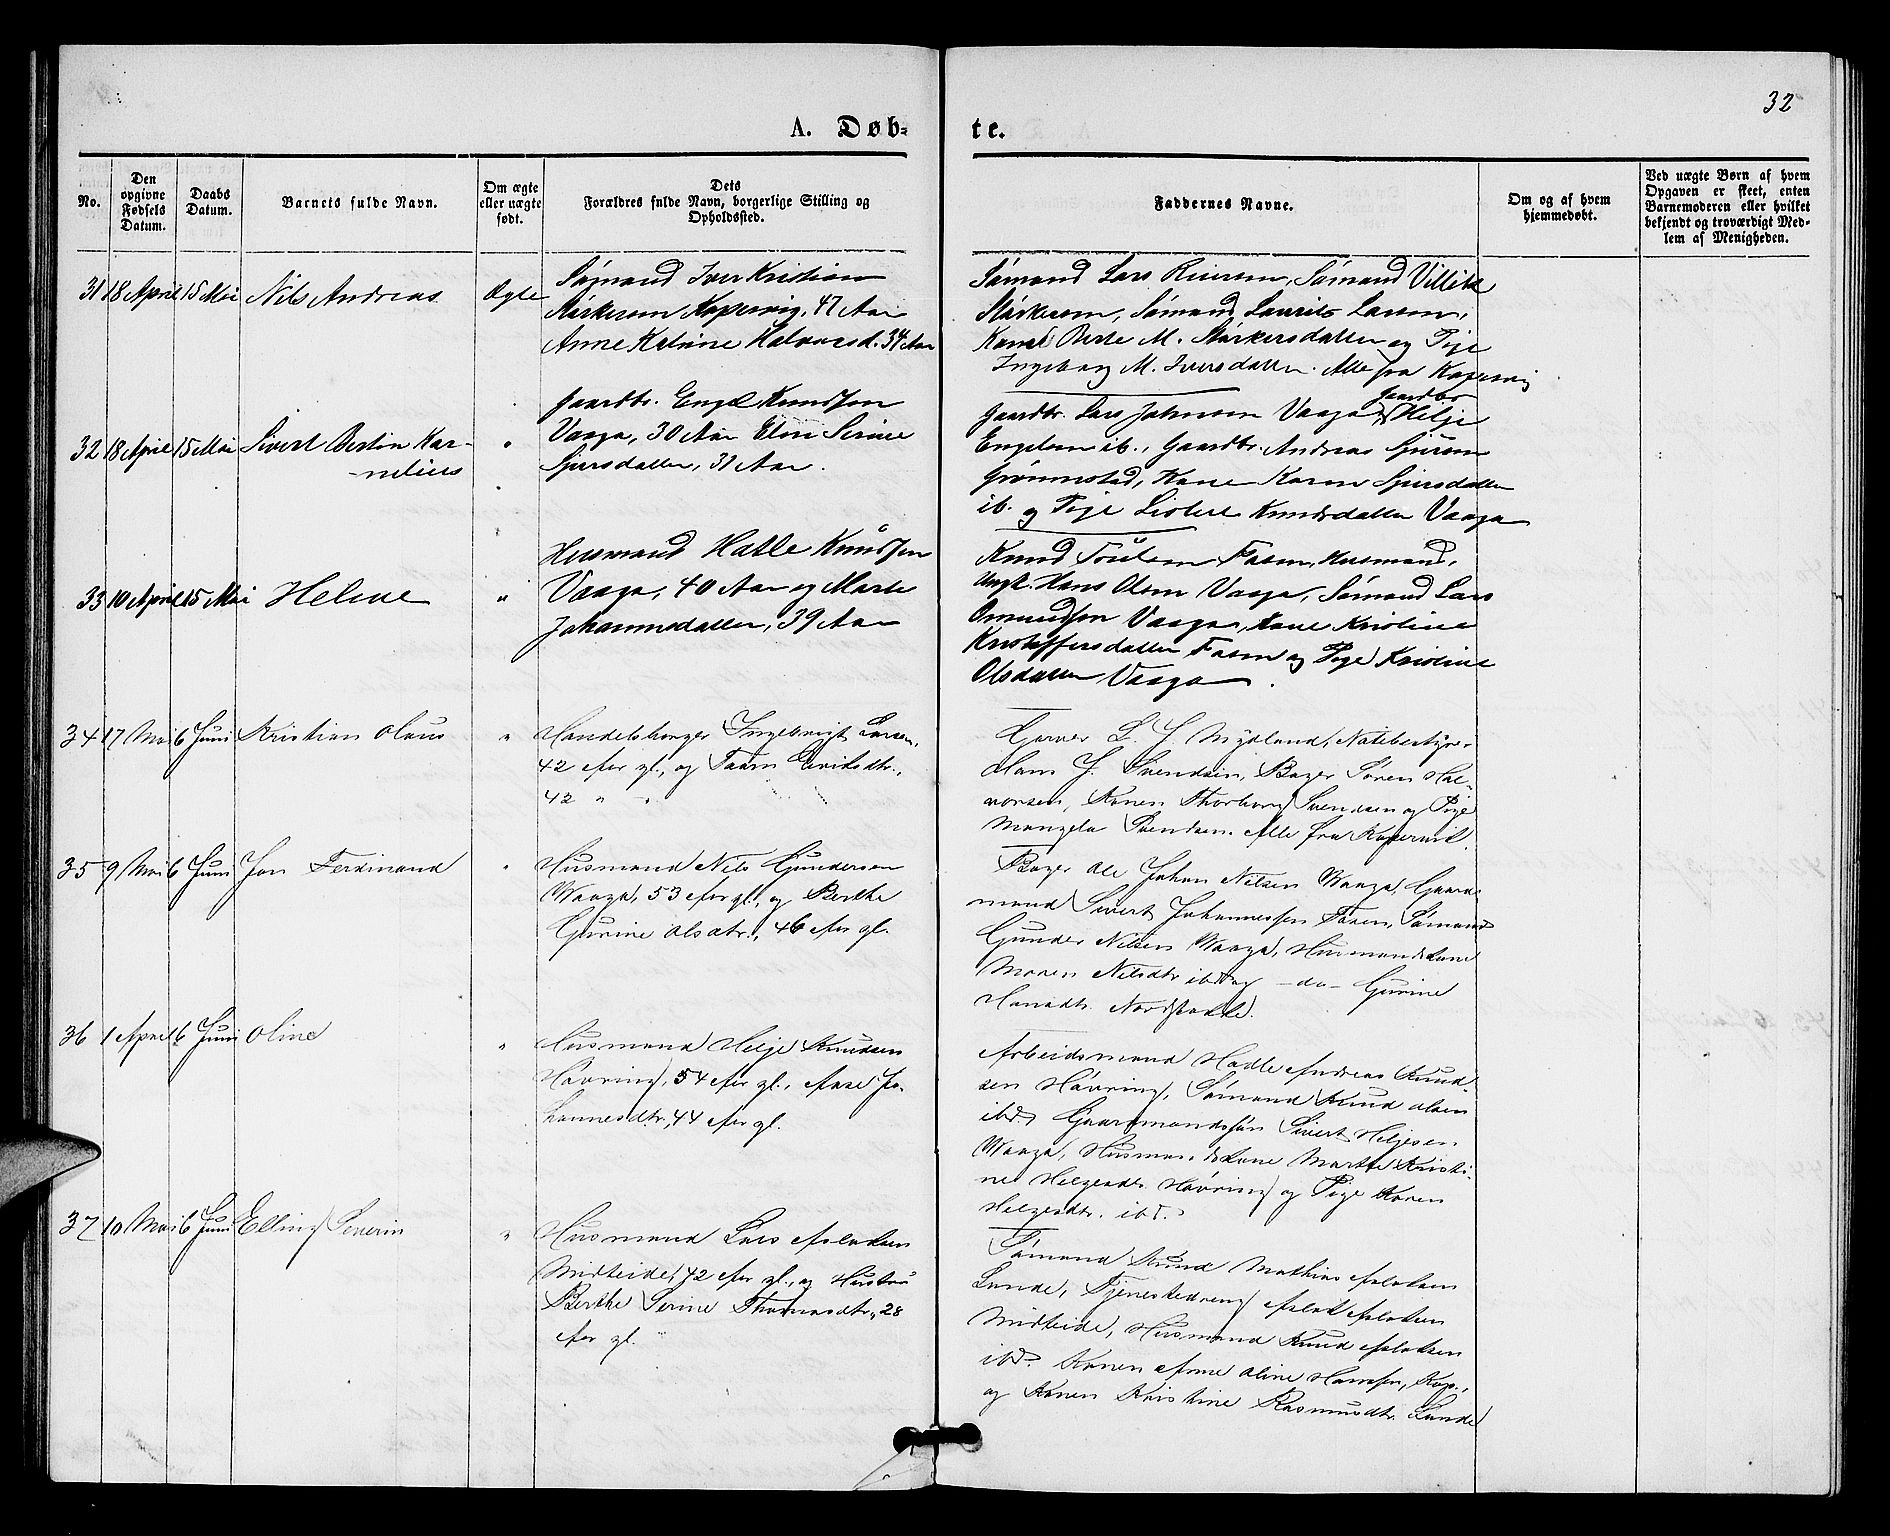 32
A. Døb-
te.
No.
Den
opgivne
Fødsels
Datum.
Daabs
Datum.
Barnets fulde Navn.
Om ægte
eller uægte
født.
Dets
Forældres fulde Navn, borgerlige Stilling og
Opholdssted.
Faddernes Navne.
Om og af hvem
hjemmedøbt.
Ved uægte Børn af hvem
Opgaven er skeet, enten
Barnemoderen eller hvilket
bekjendt og troværdigt Med-
lem af Menigheden.
31 18 April 15 Mai Nils Andreas Ægte
Sømand Iver Kristian
Størkersen Kopervig, 47 Aar
Anne Katrine Halvorsd. 34 Aar
Sømand Lars Reiersen, Sømand Villik
Størkersen, Sømand Laurits Larsen,
Kone Berte M. Størkersdatter og Pige
Ingeborg M. Iversdatter. Alle fra Kopervig
32 18 April 15 Mai Sivert Bertin Kar-
-nelius
"
Gaardbr. Engel Knudsen
Vaaga, 30 Aar Elen Serine
Sjursdatter, 31 Aar.
Gaardbr. Lars Johnsen Vaaga, Gaardbr Helje
Engelsen ib., Gaardbr. Andreas Sjursen
Grønnestad, Kone Karen Sjursdatter
ib. og Pige Knudsdatter Vaaga
33 10 April 15 Mai Helene "
Husmand Hatle Knudsen
Vaaga, 40 Aar og Marte
Johannesdatter, 39 Aar
Knud Fosen, Husmand,
Ungk. Hans Olsen Vaaga, Sømand Lars
Omundsen Vaaga, Kone Kristine
Kristoffersdatter Fosen og Pige Kristine
Olsdatter Vaaga.
34 17 Mai 6 Juni Kristian Olaus "
Handelsborger Ingebrigt Larsen,
42 Aar gl., og Taarn Eriksdtr.,
42 " "
Garver L. J. Mydland,
Hans J. Svendsen, Bager Søren Hal-
vorsen, Konen Thorborg Svendsen og Pige
Mangela Svendsen. Alle fra Kopervik.
35 9 Mai 6 Juni Jon Ferdinand "
Husmand Nils Gundersen
Waaga, 53 Aar gl., og Berthe
Gurine Olsdtr., 46 Aar gl.
Bager Ole Johan Nilsen Waaga, Gaard-
mand Sivert Johannessen Fosen, Sømand
Gunder Nilsen Waaga, Husmandskone
Maren Nilsdtr. ibd. og -do- Gurine
Hansdtr. Nordstokke.
36 1 April 6 Juni Oline "
Husmand Helje Knudsen
Høvring, 54 Aar gl., Aase Jo-
hannesdtr., 44 Aar gl.
Arbeidsmand Hadle Andreas Knud-
sen Høvring, Sømand Knud Olsen
ibd. Gaardmandssøn Sivert Heljesen
Waaga, Husmandskone Marthe Kristi-
ne Helgesdtr. Høvring og Pige Karen
Helgesdtr. ibd.
37 10 Mai 6 Juni Elling Severin "
Husmand Lars Aslaksen
Midteide, 42 Aar gl., og Hustru
Berthe Serine Thomasdtr., 28
Aar gl.
Sømand Knud Mathias Aslaksen
Lunde, Tjenestedreng Aslak Aslaksen
Midteide, Husmand Knud Aslaksen
ibd. Konen Anne Oline Hansen, Kop.,
og Konen Kristine Rasmusdtr. Lunde